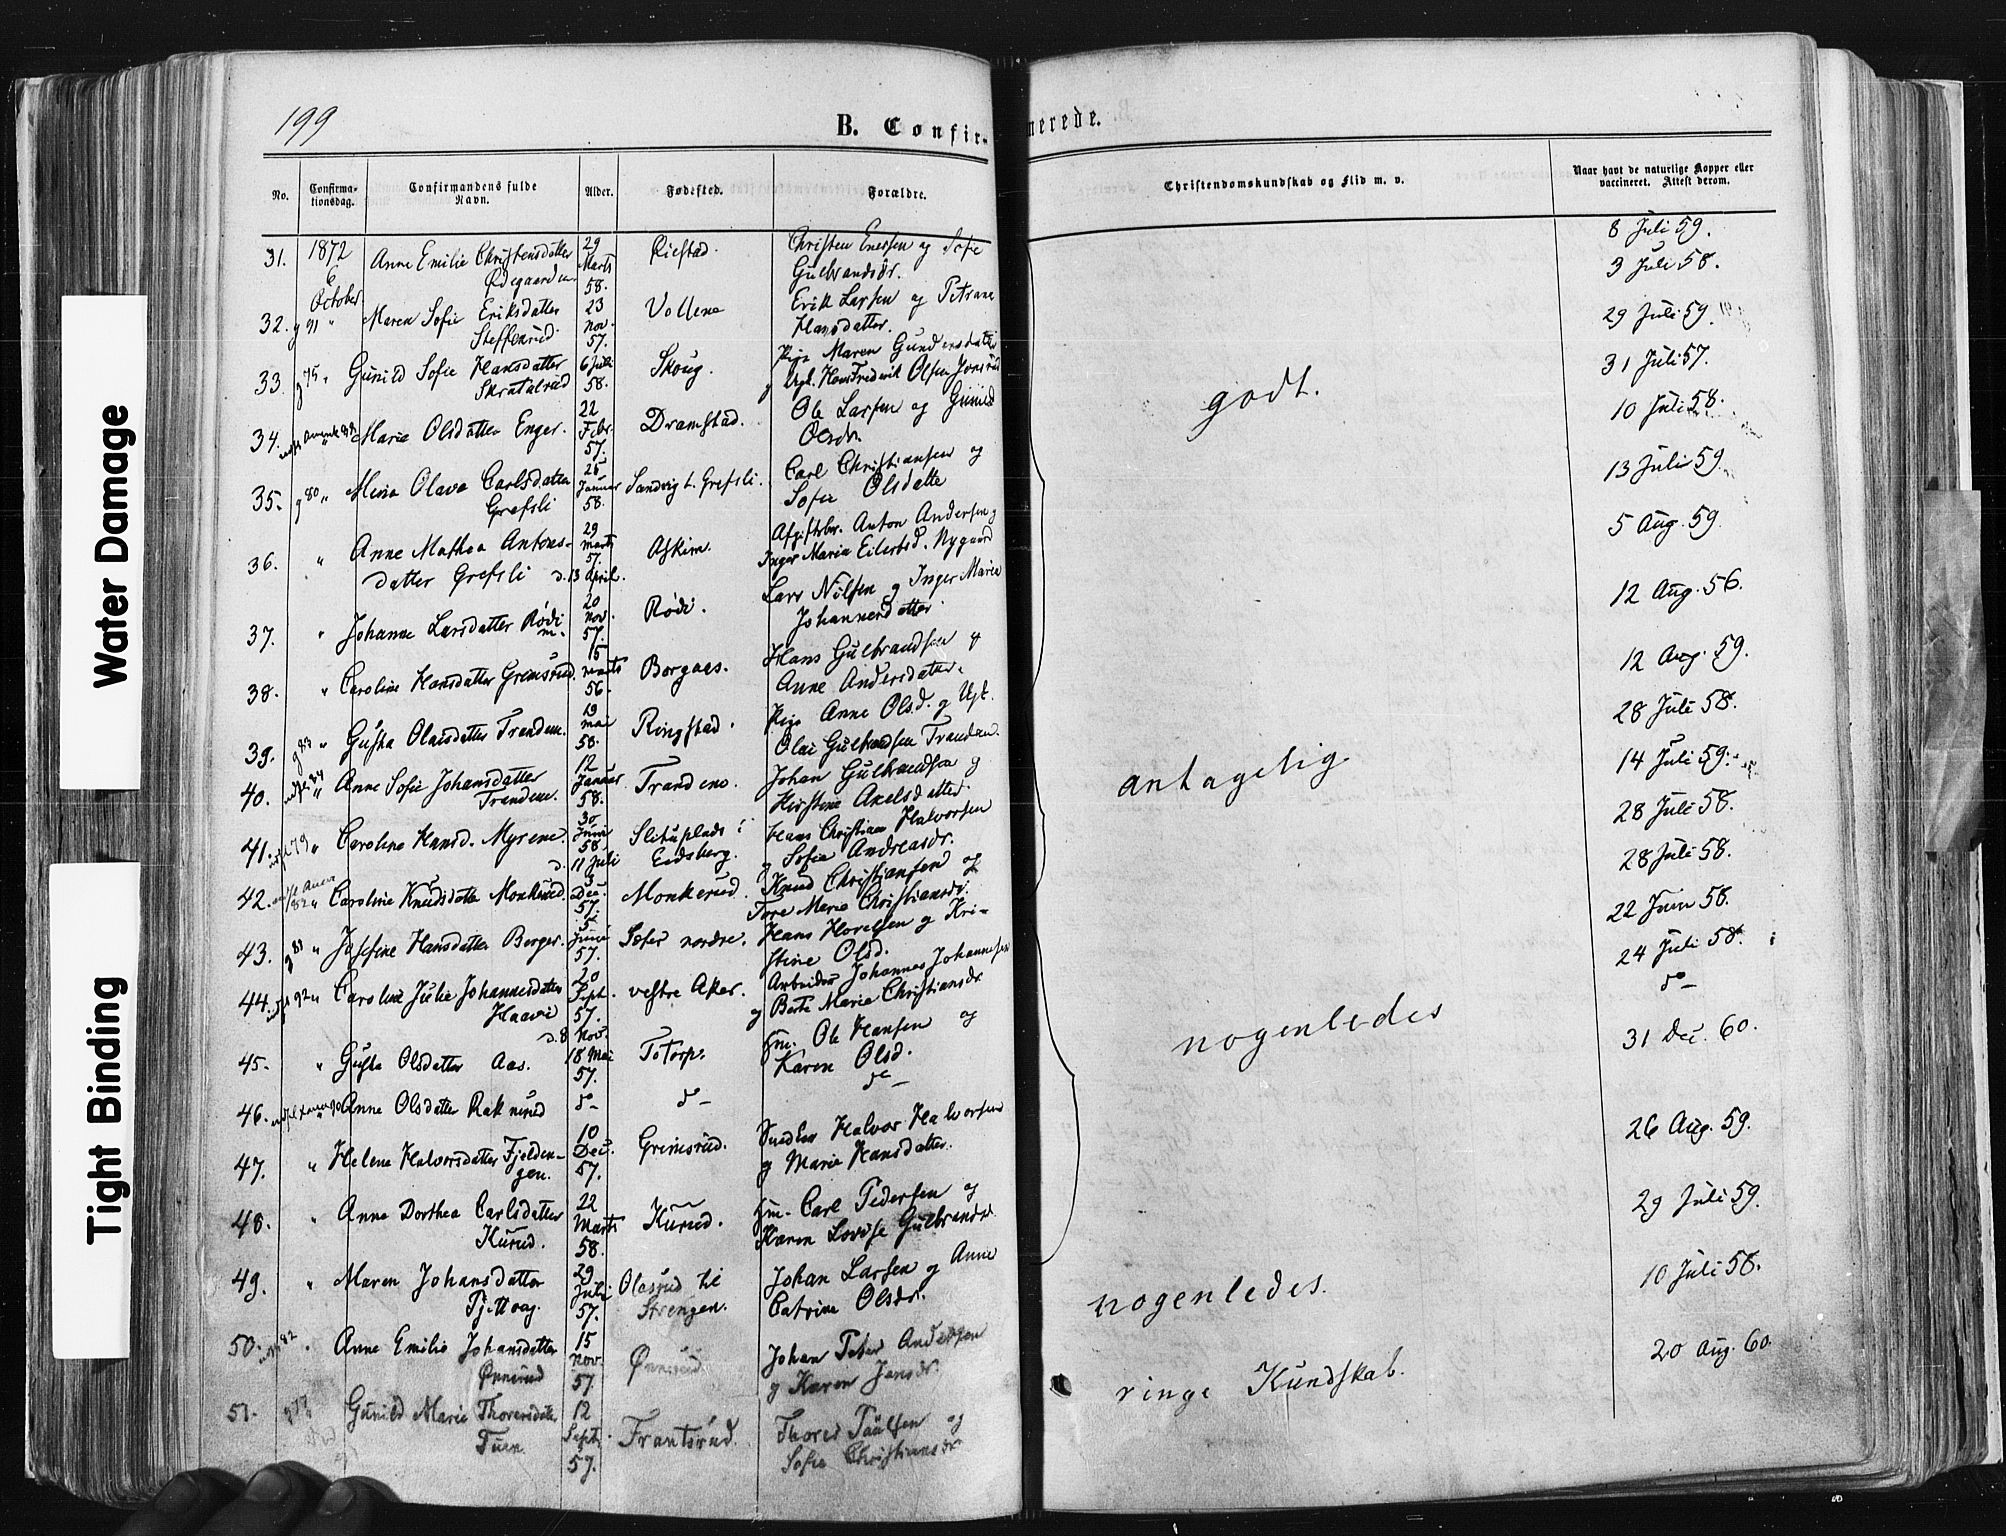 199
B. Confir-
merede.
No.
Confirma-
tionsdag.
Confirmandens fulde
Navn.
Alder.
Fødested.
Forældre.
Christendomskundskab og Flid m. v.
Naar havt de naturlige Kopper eller
vaccineret. Attest derom.
31. 1872 6 October Anne Emilie Christensdatter Ødegaarden 29 Marts 58. Riestad. Christen Enersen og Sofie Gulbrandsdr. 8 Juli 59.
3 Juli 58.
32. g 91 " Maren Sofie Eriksdatter Steffenrud. 23 Nov. 57. Vollene Erik Larsen og Petrane Hansdatter. 29 Juli 59.
33. g 75 " Gunild Sofie Hansdatter Skratalrud 6 Juli 58. Skoug. Pige Maren Gundersdatter og Ugk. Hans Frederik Olsen Jonsrud 31 Juli 57.
godt.
34. Marie Olsdatter Enger. 22 Febr. 57. Dramstad. Ole Larsen og Gunild Olsdr. 10 Juli 58.
35. g 80 " Mina Olava Carlsdatter Grefsli 25 Januar 58. Sandvig u. Grefsli. Carl Christiansen og Sofie Olsdatte 13 Juli 59.
36. " Anne Mathea Antons- datter Grefsli 29 Marts 57. d. 13 April. Askim. Afgiftsbr. Anton Andersen og Inger Maria Eilertsd. Nygaard 5 Aug. 59.
37. " Johanne Larsdatter Rødi m. 20 Nov. 57. Rødi. Lars Nilsen og Inger Maria Johannesdatter. 12 Aug. 56.
38. " Caroline Hansdatter Gremsrud. 15 Marts 56. Borgaas. Hans Gulbrandsen og Anne Andersdatter. 12 Aug. 59.
39. g 83 " Gusta Olaisdatter Trandem. 19 Mai 58. Ringstad. Pige Anne Olsd. og Ugk. Olai Gulbrandsen Trandem. 28 Juli 58.
40. " Anne Sofie Johansdatter Trandem. 12 Januar 58. Trandene. Johan Gulbrandsen og Kirstine Axelsdatter. 14 Juli 59.
antagelig
41. 79 " Caroline Hansd. Myrene. 30 Juni 58 d. 11 Juli Slituplads i Eidsberg. Hans Christian Halvorsen og Sofie Andreasdr. 28 Juli 58.
42. " Caroline Knudsdatte Monkerud. 5 Dec. 57. Monkerud. Knud Christiansen og Tore Marie Christiansdr. 28 Juli 58.
43. g 81 " Josefine Hansdatter Berger. 5 Juni 57. Sæter nordre. Hans Hovelsen og Kri- stine Olsd. 22 Juni 58.
44. 92 " Caroline Julie Johannesdatter Haavi 20 Sept. 57. d. 8 Nov. vestre Aker. Arbeider Johannes Johannesen og Berte Marie Christiansdr. 24 Juli 58.
45. " Gusta Olsdatter Aas. 18 Mai 57. Totorp. Hm. Ole Hansen og Karen Olsd. do
46. Anne Olsdatter Raknerud do do do 31 Dec. 60.
nogenledes
47. " Helene Halvorsdatter Fjelden- gen. 10 Dec. 57. Grimsrud. Snedker Halvor Halvorsen og Marie Hansdatter. 26 Aug. 59.
48. " Anne Dorthea Carlsdatter Kurud. 22 Marts 58. Kurud. Hm. Carl Pedersen og Karen Lovise Gulbrandsd. 29 Juli 59.
49. " Maren Johansdatter Tjettvag. 29 Juli 57. Olasrud til Strengen. Johan Larsen og Anne Catrine Olsdr. nogenledes. 10 Juli 58.
50. 82 " Anne Emilie Johansdatter Ønnerud 15 Nov. 57 Ønnerud. Johan Peter Andersen og Karen Jensdr. ringe Kundskab. 20 Aug. 60.
51. g 77 Gunild Marie Thoresdatr. Tuen 12 Sept. 57. Frantsrud. Thores Paulsen og Sofie Christiansdr
Water Damage
Tight Binding